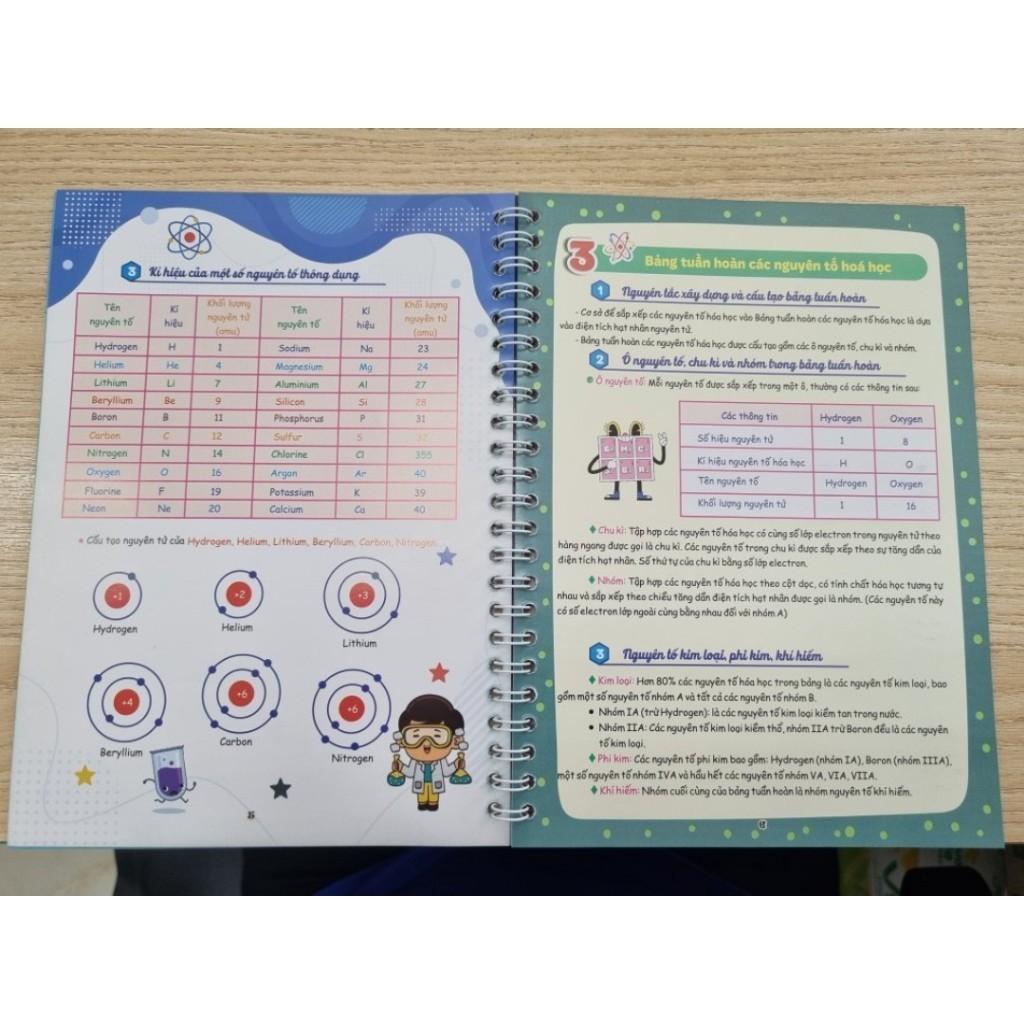 3 Kí hiệu của một số nguyên tố thông dụng
Tên nguyên tố | Kí hiệu | Khối lượng nguyên tử (amu) | Tên nguyên tố | Kí hiệu | Khối lượng nguyên tử (amu)
Hydrogen H 1 Sodium Na 23
Helium He 4 Magnesium Mg 24
Lithium Li 7 Aluminium Al 27
Beryllium Be 9 Silicon Si 28
Boron B 11 Phosphorus P 31
Carbon C 12 Sulfur S 32
Nitrogen N 14 Chlorine Cl 355
Oxygen O 16 Argon Ar 40
Fluorine F 19 Potassium K 39
Neon Ne 20 Calcium Ca 40
Cấu tạo nguyên tử của Hydrogen, Helium, Lithium, Beryllium, Carbon, Nitrogen.
+1 +2 +3
Hydrogen Helium Lithium
+4 +6 +6
Beryllium Carbon Nitrogen
3 Bảng tuần hoàn các nguyên tố hoá học
1 Nguyên tắc xây dựng và cấu tạo bảng tuần hoàn
- Cơ sở để sắp xếp các nguyên tố hóa học vào Bảng tuần hoàn các nguyên tố hóa học là dựa
vào điện tích hạt nhân nguyên tử.
- Bảng tuần hoàn các nguyên tố hóa học được cấu tạo gồm các ô nguyên tố, chu kì và nhóm.
2 Ô nguyên tố, chu kì và nhóm trong bảng tuần hoàn
Ô nguyên tố: Mỗi nguyên tố được sắp xếp trong một ô, thường có các thông tin sau:
Các thông tin Hydrogen Oxygen
Số hiệu nguyên tử 1 8
Kí hiệu nguyên tố hóa học H O
Tên nguyên tố Hydrogen Oxygen
Khối lượng nguyên tử 1 16
Chu kì: Tập hợp các nguyên tố hóa học có cùng số lớp electron trong nguyên tử theo
hàng ngang được gọi là chu kì. Các nguyên tố trong chu kì được sắp xếp theo sự tăng dần của
điện tích hạt nhân. Số thứ tự của chu kì bằng số lớp electron.
Nhóm: Tập hợp các nguyên tố hóa học theo cột dọc, có tính chất hóa học tương tự
nhau và sắp xếp theo chiều tăng dần điện tích hạt nhân được gọi là nhóm. (Các nguyên tố này
có số electron lớp ngoài cùng bằng nhau đối với nhóm A)
3 Nguyên tố kim loại, phi kim, khí hiếm
Kim loại: Hơn 80% các nguyên tố hóa học trong bảng là các nguyên tố kim loại, bao
gồm một số nguyên tố nhóm A và tất cả các nguyên tố nhóm B.
Nhóm IA (trừ Hydrogen): là các nguyên tố kim loại kiềm tan trong nước.
Nhóm IIA: Các nguyên tố kim loại kiềm thổ, nhóm IIA trừ Boron đều là các nguyên
tố kim loại.
Phi kim: Các nguyên tố phi kim bao gồm: Hydrogen (nhóm IA), Boron (nhóm IIIA),
một số nguyên tố nhóm IVA và hầu hết các nguyên tố nhóm VA, VIA, VIIA.
Khí hiếm: Nhóm cuối cùng của bảng tuần hoàn là nhóm nguyên tố khí hiếm.